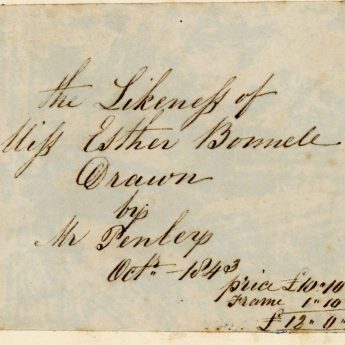 the Likeneſs of
Miſs Esther Bonnell
Drawn
by
Mr Penley
Octr - 1843
price £10"10
Frame 1"10
£12"0"